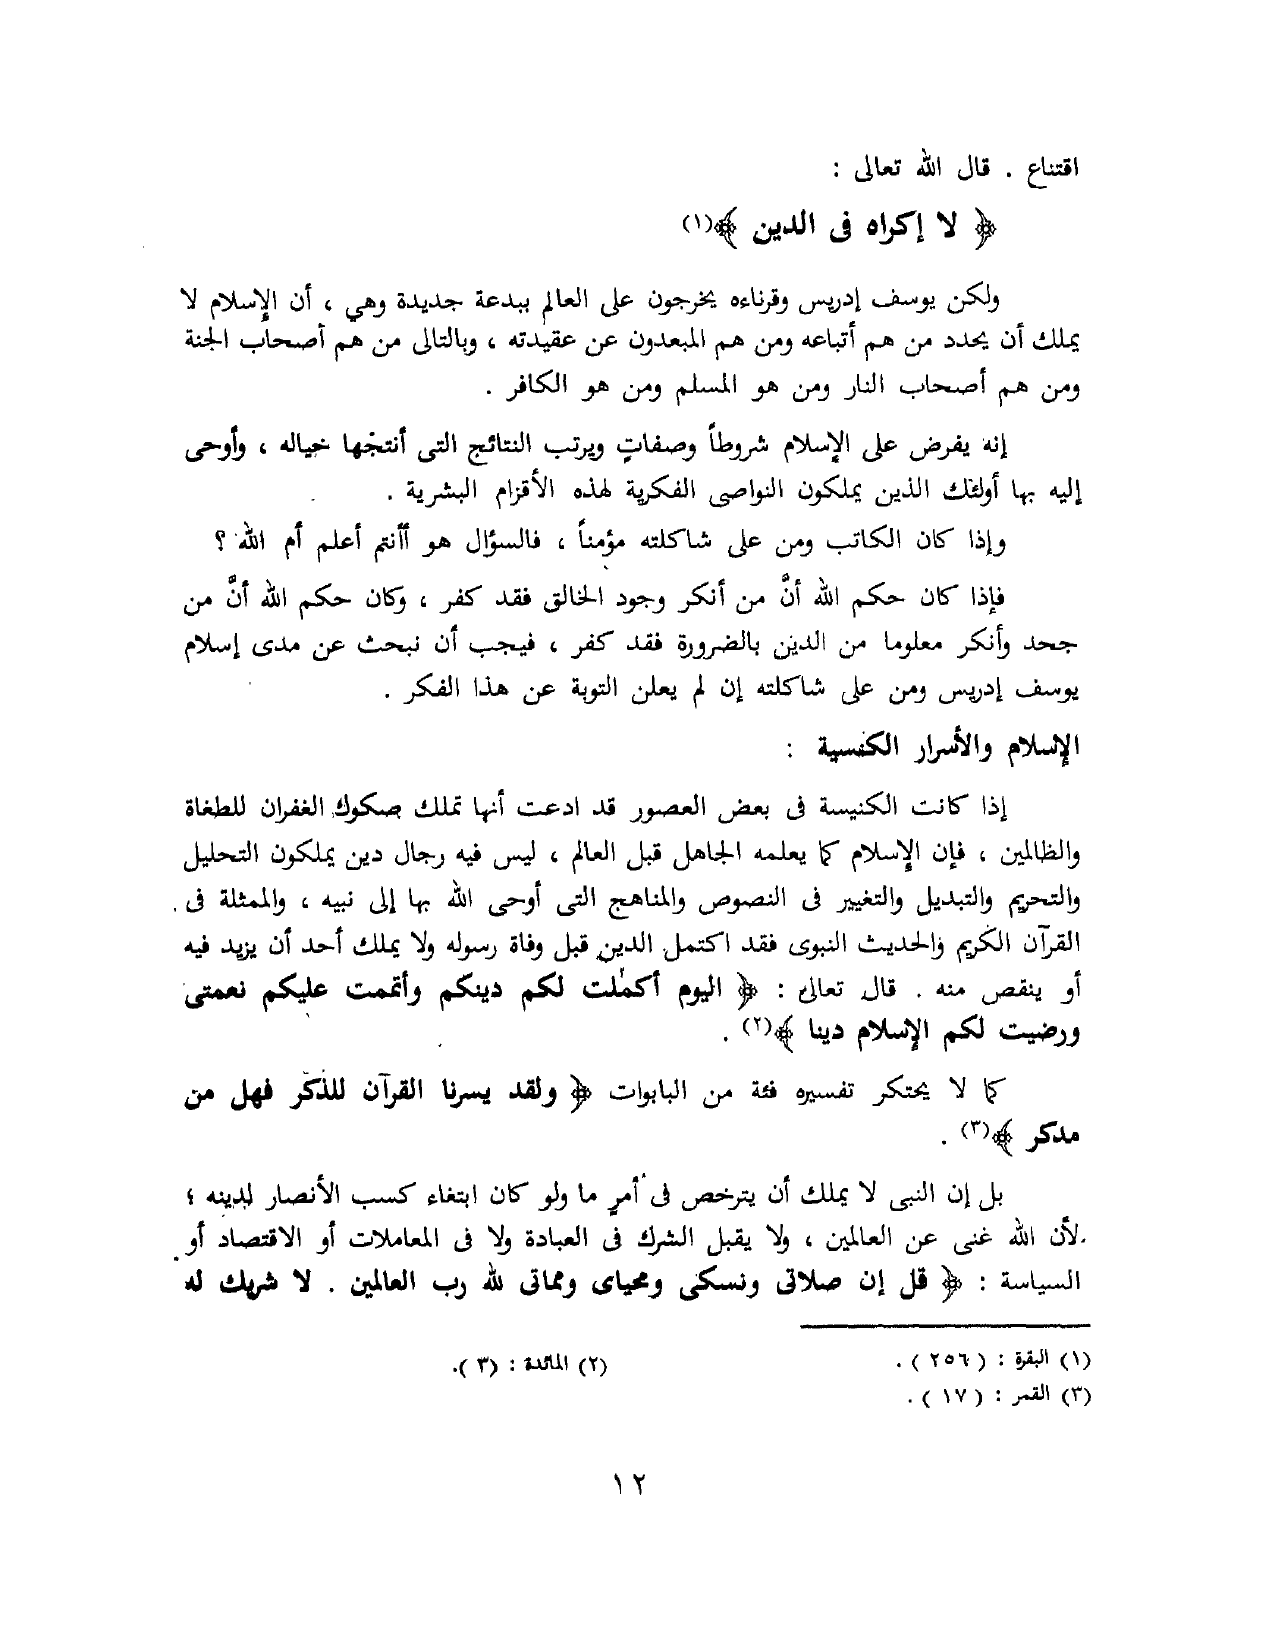 اقتناع . قال الله تعالى :
﴿ لا إكراه فى الدين ﴾(١)
ولكن يوسف إدريس وقرناءه يخرجون على العالم ببدعة جديدة وهي ، أن الإسلام لا
يملك أن يحدد من هم أتباعه ومن هم المبعدون عن عقيدته ، وبالتالى من هم أصحاب الجنة
ومن هم أصحاب النار ومن هو المسلم ومن هو الكافر .
إنه يفرض على الإسلام شروطاً وصفاتٍ ويرتب النتائج التى أنتجها خياله ، وأوحى
إليه بها أولئك الذين يملكون النواصى الفكرية لهذه الأقزام البشرية .
وإذا كان الكاتب ومن على شاكلته مؤمناً ، فالسؤال هو أأنتم أعلم أم الله ؟
فإذا كان حكم الله أنَّ من أنكر وجود الخالق فقد كفر ، وكان حكم الله أنَّ من
جحد وأنكر معلوما من الدين بالضرورة فقد كفر ، فيجب أن نبحث عن مدى إسلام
يوسف إدريس ومن على شاكلته إن لم يعلن التوبة عن هذا الفكر .
الإسلام والأسرار الكنسية :
إذا كانت الكنيسة فى بعض العصور قد ادعت أنها تملك صكوك الغفران للطغاة
والظالمين ، فإن الإسلام كما يعلمه الجاهل قبل العالم ، ليس فيه رجال دين يملكون التحليل
والتحريم والتبديل والتغيير فى النصوص والمناهج التى أوحى الله بها إلى نبيه ، والممثلة فى
القرآن الكريم والحديث النبوى فقد اكتمل الدين قبل وفاة رسوله ولا يملك أحد أن يزيد فيه
أو ينقص منه . قال تعالى : ﴿ اليوم أكملت لكم دينكم وأتممت عليكم نعمتى
ورضيت لكم الإسلام دينا ﴾(٢) .
كما لا يحتكر تفسيره فئة من البابوات ﴿ ولقد يسرنا القرآن للذكر فهل من
مدكر ﴾(٣) .
بل إن النبى لا يملك أن يترخص فى أمرٍ ما ولو كان ابتغاء كسب الأنصار لدينه ؛
لأن الله غنى عن العالمين ، ولا يقبل الشرك فى العبادة ولا فى المعاملات أو الاقتصاد أو
السياسة : ﴿ قل إن صلاتى ونسكى ومحياى ومماتى لله رب العالمين . لا شريك له
(١) البقرة : ( ٢٥٦ ) .
(٢) المائدة : (٣ ).
(٣) القمر : ( ١٧ ) .
١٢